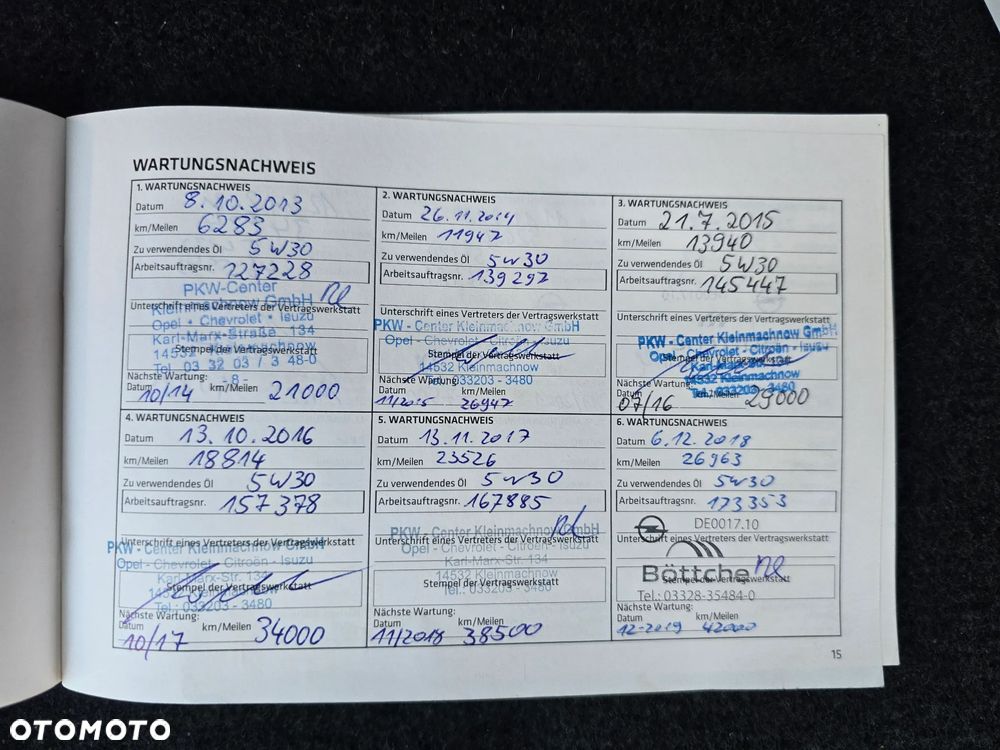 WARTUNGSNACHWEIS
1. WARTUNGSNACHWEIS
Datum 8.10.2013
km/Meilen 6283
Zu verwendendes Öl 5W30
Arbeitsauftragsnr. 127228
PKW-Center
Kleinmachnow GmbH
Unterschrift eines Vertreters der Vertragswerkstatt
Opel • Chevrolet • Isuzu
Karl-Marx-Straße 134
Stempel der Vertragswerkstatt
14532 Kleinmachnow
Tel. 03 32 03 / 3 48-0
- 8 -
Nächste Wartung:
Datum 10/14 km/Meilen 21000
2. WARTUNGSNACHWEIS
Datum 26.11.2014
km/Meilen 11947
Zu verwendendes Öl 5W30
Arbeitsauftragsnr. 139292
Unterschrift eines Vertreters der Vertragswerkstatt
PKW - Center Kleinmachnow GmbH
Opel - Chevrolet - Citroën - Isuzu
Stempel der Vertragswerkstatt
14532 Kleinmachnow
Tel.: 033203 - 3480
Nächste Wartung:
Datum 11/2015 km/Meilen 26947
3. WARTUNGSNACHWEIS
Datum 21.7.2015
km/Meilen 13940
Zu verwendendes Öl 5W30
Arbeitsauftragsnr. 145447
Unterschrift eines Vertreters der Vertragswerkstatt
PKW - Center Kleinmachnow GmbH
Opel - Chevrolet - Citroën - Isuzu
Stempel der Vertragswerkstatt
14532 Kleinmachnow
Tel.: 033203 - 3480
Nächste Wartung:
Datum 07/16 km/Meilen 29000
4. WARTUNGSNACHWEIS
Datum 13.10.2016
km/Meilen 18814
Zu verwendendes Öl 5W30
Arbeitsauftragsnr. 157378
Unterschrift eines Vertreters der Vertragswerkstatt
PKW - Center Kleinmachnow GmbH
Opel - Chevrolet - Citroën - Isuzu
Karl-Marx-Str. 134
Stempel der Vertragswerkstatt
14532 Kleinmachnow
Tel.: 033203 - 3480
Nächste Wartung:
Datum 10/17 km/Meilen 34000
5. WARTUNGSNACHWEIS
Datum 13.11.2017
km/Meilen 23526
Zu verwendendes Öl 5W30
Arbeitsauftragsnr. 167885
PKW - Center Kleinmachnow GmbH
Unterschrift eines Vertreters der Vertragswerkstatt
Opel - Chevrolet - Citroën - Isuzu
Karl-Marx-Str. 134
14532 Kleinmachnow
Stempel der Vertragswerkstatt
Tel.: 033203 - 3480
Nächste Wartung:
Datum 11/2018 km/Meilen 38500
6. WARTUNGSNACHWEIS
Datum 6.12.2018
km/Meilen 26963
Zu verwendendes Öl 5W30
Arbeitsauftragsnr. 173353
DE0017.10
Unterschrift eines Vertreters der Vertragswerkstatt
Böttche
Stempel der Vertragswerkstatt
Tel.:03328-35484-0
Nächste Wartung:
Datum 12-2019 km/Meilen 42000
15
OTOMOTO